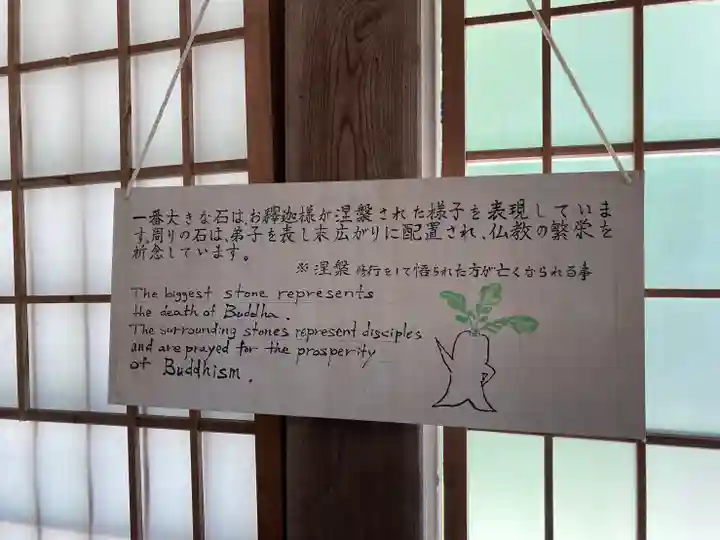 一番大きな石は、お釋迦様が涅槃された様子を表現していま
す。周りの石は、弟子を表し末広がりに配置され、仏教の繁栄を
祈念しています。
※涅槃 修行をして悟られた方が亡くなられる事
The biggest stone represents
the death of Buddha.
The surrounding stones represent disciples
and are prayed for the prosperity
of Buddhism.